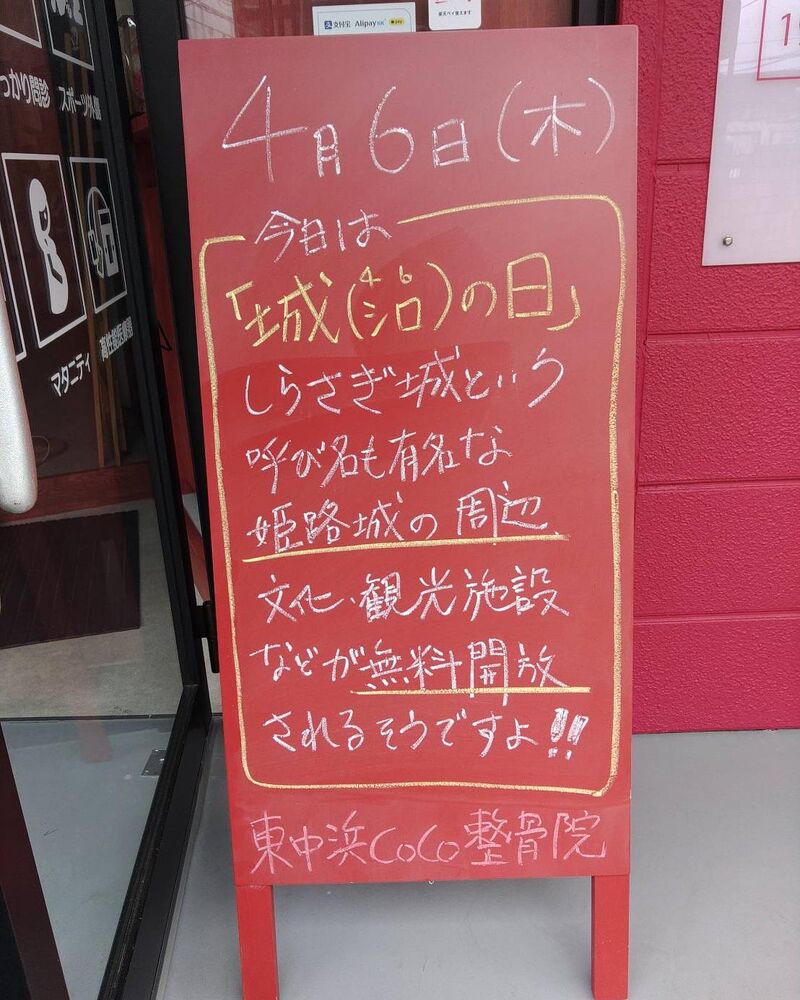 支付宝 Alipay
4月6日(木)
今日は
4 6
「城(シロ)の日」
しらさぎ城という
呼び名も有名な
姫路城の周辺、
文化、観光施設
などが無料開放
されるそうですよ!!
東中浜CoCo整骨院
っかり問診
スポーツ外傷
マタニティ
高性能医療機器